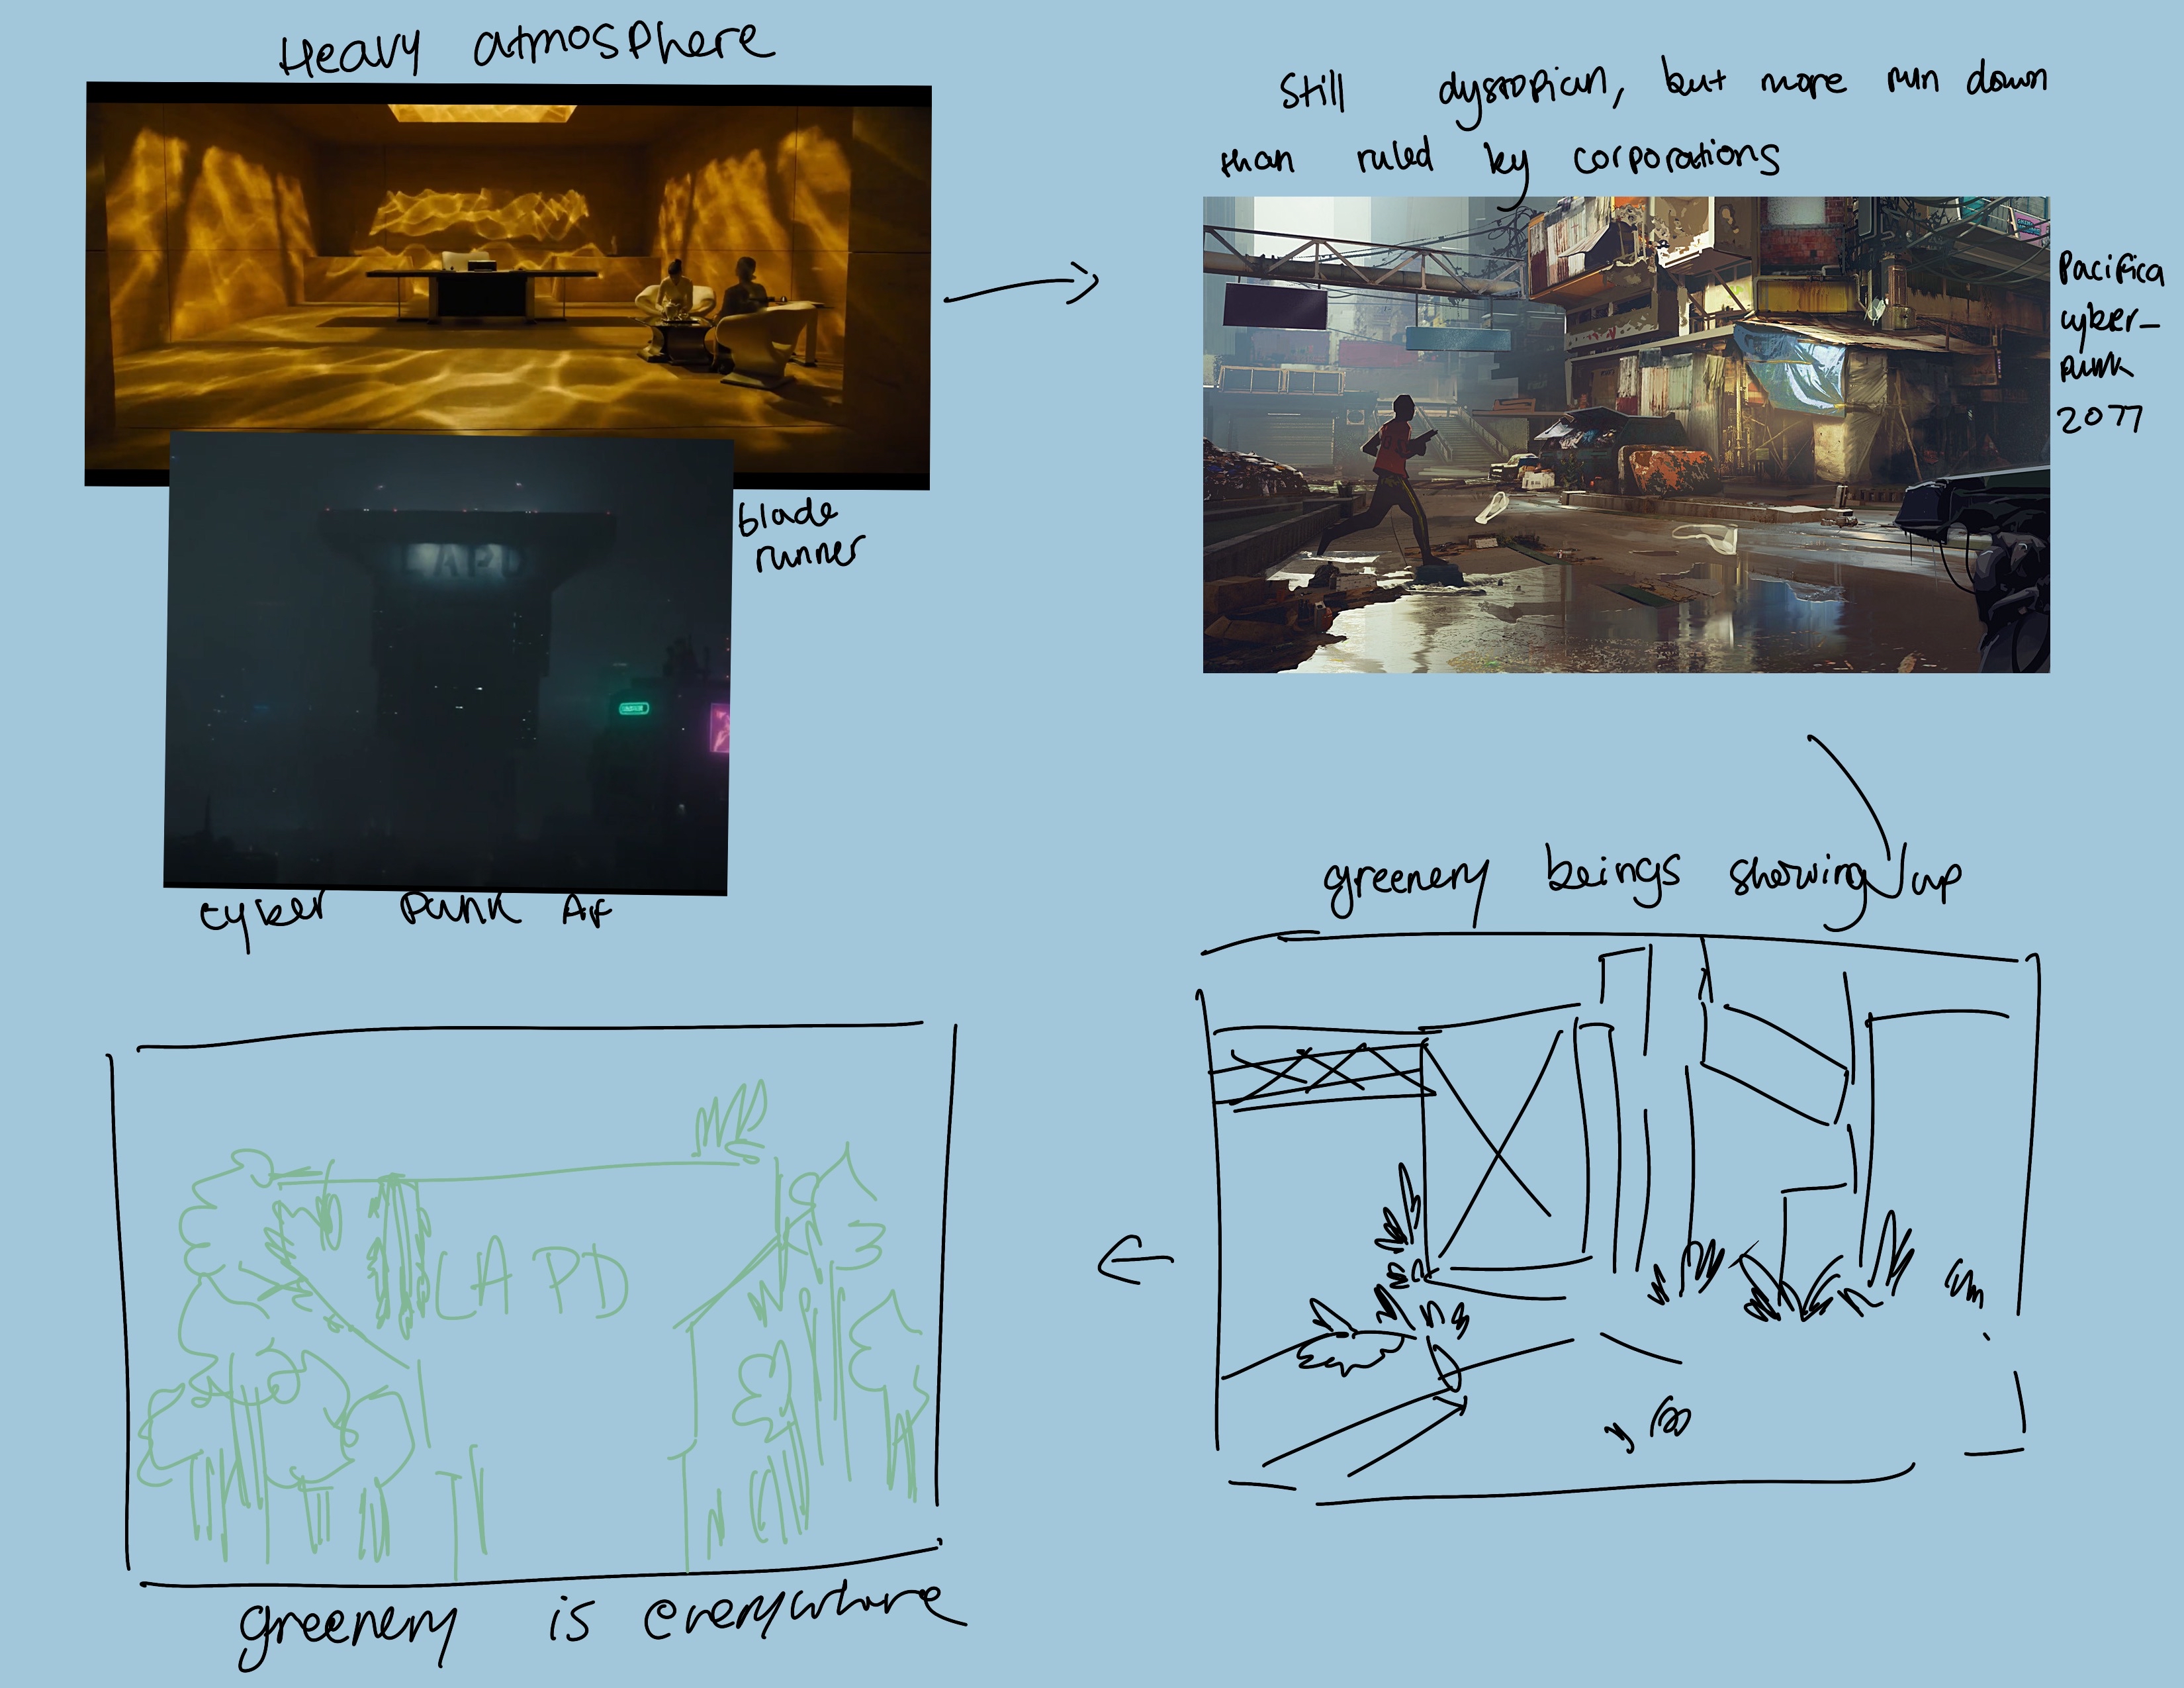 Heavy atmosphere
LAPD
blade
runner
cyber punk AF
Still dystopian, but more run down
than ruled by corporations
Pacifica
cyber-
punk
2077
greenery beings showing up
LAPD
greenery is everywhere